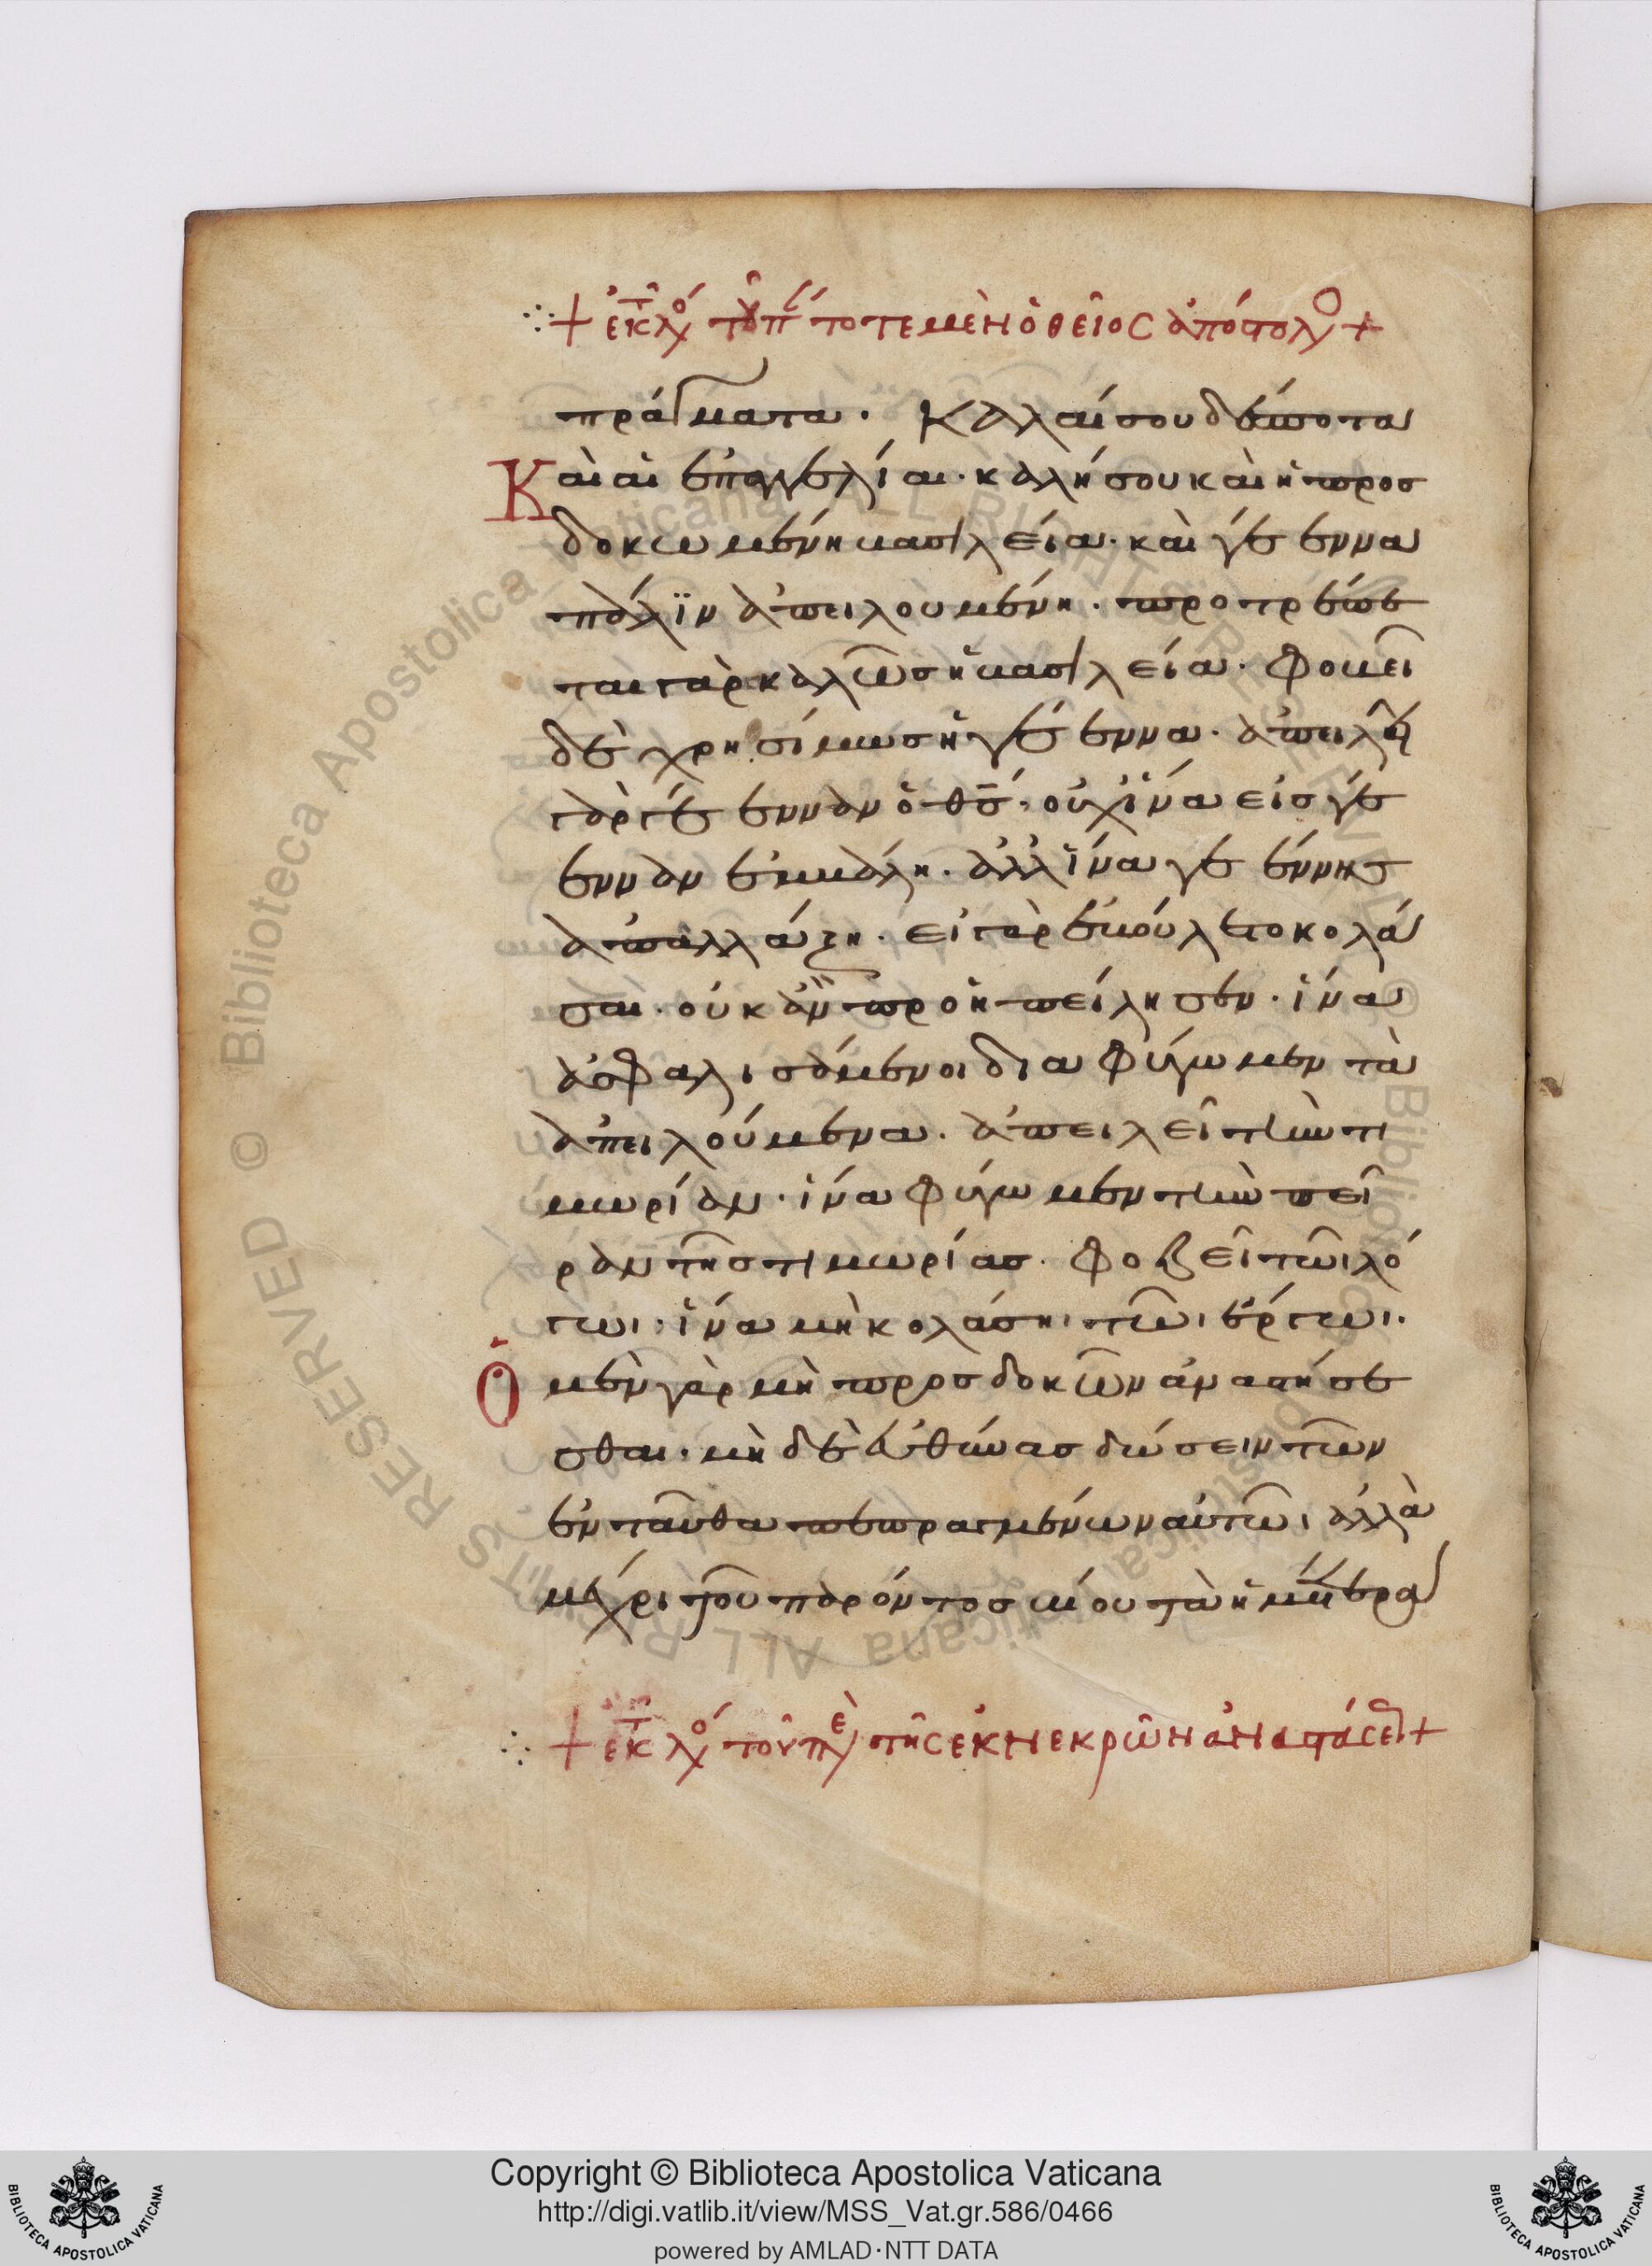 + ἐκ τ λόγ τοῦ π τότε μὲν ὁ θεῖος ἀπόστολο +
πράγματα. Καλαί σου δέσποτα
Καὶ αἱ ἐπαγγελίαι. καλή σου καὶ ἡ προσ
δοκωμένη βασιλεία. καὶ γέεννα
πάλϊν ἀπειλουμένη. προτρέπε
ται γὰρ καλῶς ἡ βασιλεία. φοβεῖ
δὲ χρησίμως ἡ γέεννα. ἀπειλεῖ
γὰρ γέενναν ὁ θς. οὐχ ἵνα εἰς γέ
ενναν ἐμβάλη. ἀλλ ἵνα γεέννης
ἀπαλλάξη. εἰ γὰρ ἐβούλετο κολά
σαι. οὐκ ἂν προηπείλησεν. ἵνα
ἀσφαλισάμενοι διαφύγωμεν τὰ
ἀπειλούμενα. ἀπειλεῖ τὴν τι
μωρίαν. ἵνα φύγωμεν τὴν πεῖ
ραν τῆς τιμωρίας. φοβεῖ τῶι λό
γωι. ἵνα μὴ κολάσηι τῶι ἔργωι.
Ὁ μὲν γὰρ μὴ προσδοκῶν ἀναστήσε
σθαι. μὴ δὲ εὐθύνας δώσειν τῶν
ἐνταῦθα πεπραγμένων αὐτῶι ἀλλὰ
μέχρι τοῦ παρόντος βίου τὰ ἡμέτερα
+ ἐκ τ λόγ τοῦ πε τῆς ἐκ νεκρῶν ἀναστάσεως +
Copyright © Biblioteca Apostolica Vaticana
http://digi.vatlib.it/view/MSS_Vat.gr.586/0466
powered by AMLAD·NTT DATA
BIBLIOTECA APOSTOLICA VATICANA
BIBLIOTECA APOSTOLICA VATICANA
© Biblioteca Apostolica Vaticana ALL RIGHTS RESERVED